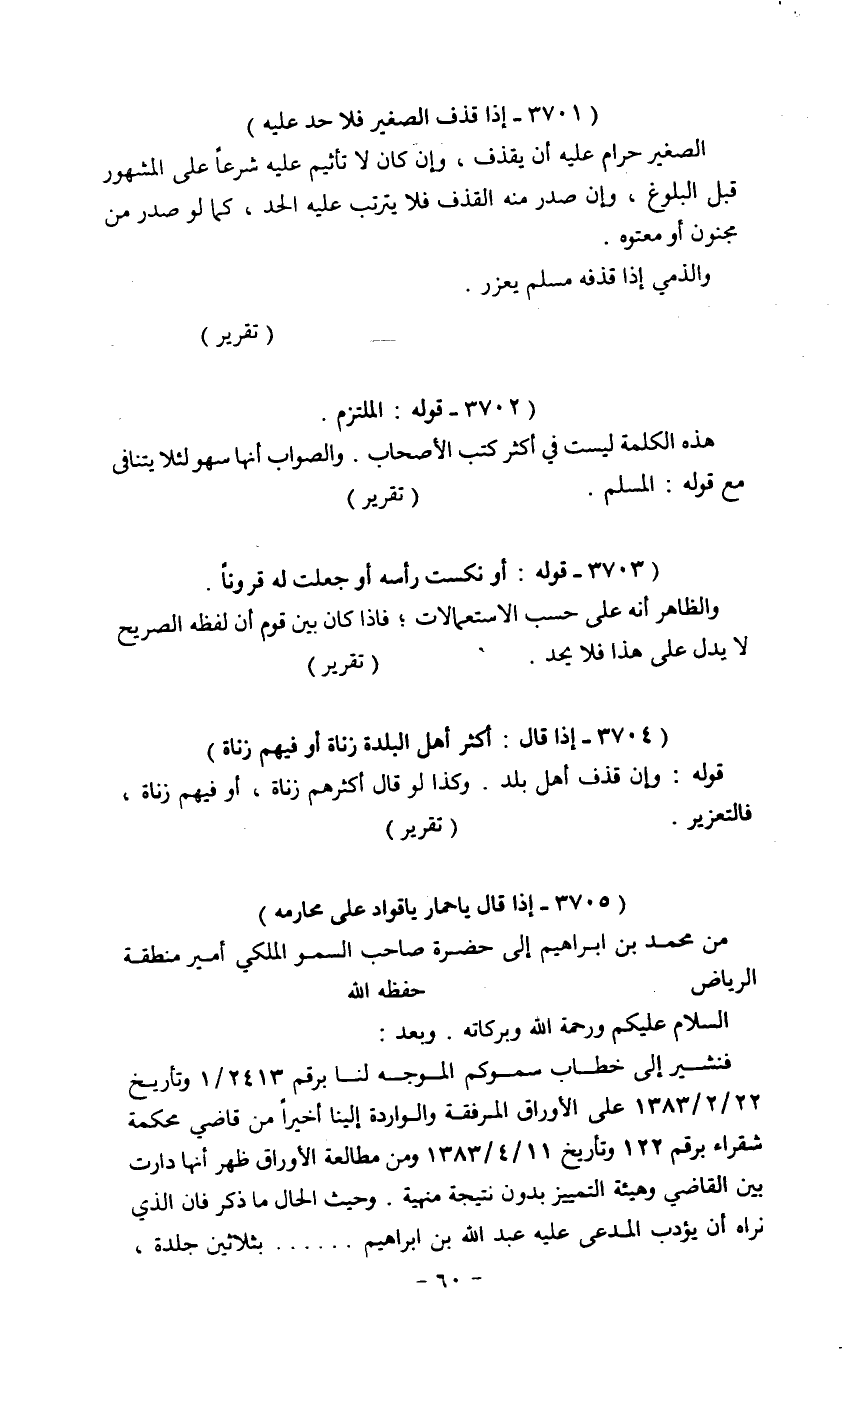 ( ٣٧٠١ ـ إذا قذف الصغير فلا حد عليه )
الصغير حرام عليه أن يقذف ، وإن كان لا تأثيم عليه شرعاً على المشهور
قبل البلوغ ، وإن صدر منه القذف فلا يترتب عليه الحد ، كما لو صدر من
مجنون أو معتوه .
والذمي إذا قذفه مسلم يعزر .
( تقرير )
( ٣٧٠٢ ـ قوله : الملتزم .
هذه الكلمة ليست في أكثر كتب الأصحاب . والصواب أنها سهو لئلا يتنافى
مع قوله : المسلم . ( تقرير )
( ٣٧٠٣ ـ قوله : أو نكست رأسه أو جعلت له قروناً .
والظاهر أنه على حسب الاستعمالات ؛ فاذا كان بين قوم أن لفظه الصريح
لا يدل على هذا فلا يحد . ( تقرير )
( ٣٧٠٤ ـ إذا قال : أكثر أهل البلدة زناة أو فيهم زناة )
قوله : وإن قذف أهل بلد . وكذا لو قال أكثرهم زناة ، أو فيهم زناة ،
فالتعزير . ( تقرير )
( ٣٧٠٥ ـ إذا قال ياحمار ياقواد على محارمه )
من محمد بن ابراهيم إلى حضرة صاحب السمو الملكي أمير منطقة
الرياض حفظه الله
السلام عليكم ورحمة الله وبركاته . وبعد :
فنشير إلى خطاب سموكم الموجه لنا برقم ١/٢٤١٣ وتأريخ
١٣٨٣/٢/٢٢ على الأوراق المرفقة والواردة إلينا أخيراً من قاضي محكمة
شقراء برقم ١٢٢ وتأريخ ١٣٨٣/٤/١١ ومن مطالعة الأوراق ظهر أنها دارت
بين القاضي وهيئة التمييز بدون نتيجة منهية . وحيث الحال ما ذكر فان الذي
نراه أن يؤدب المدعى عليه عبد الله بن ابراهيم . . . . . . بثلاثين جلدة ،
- ٦٠ -